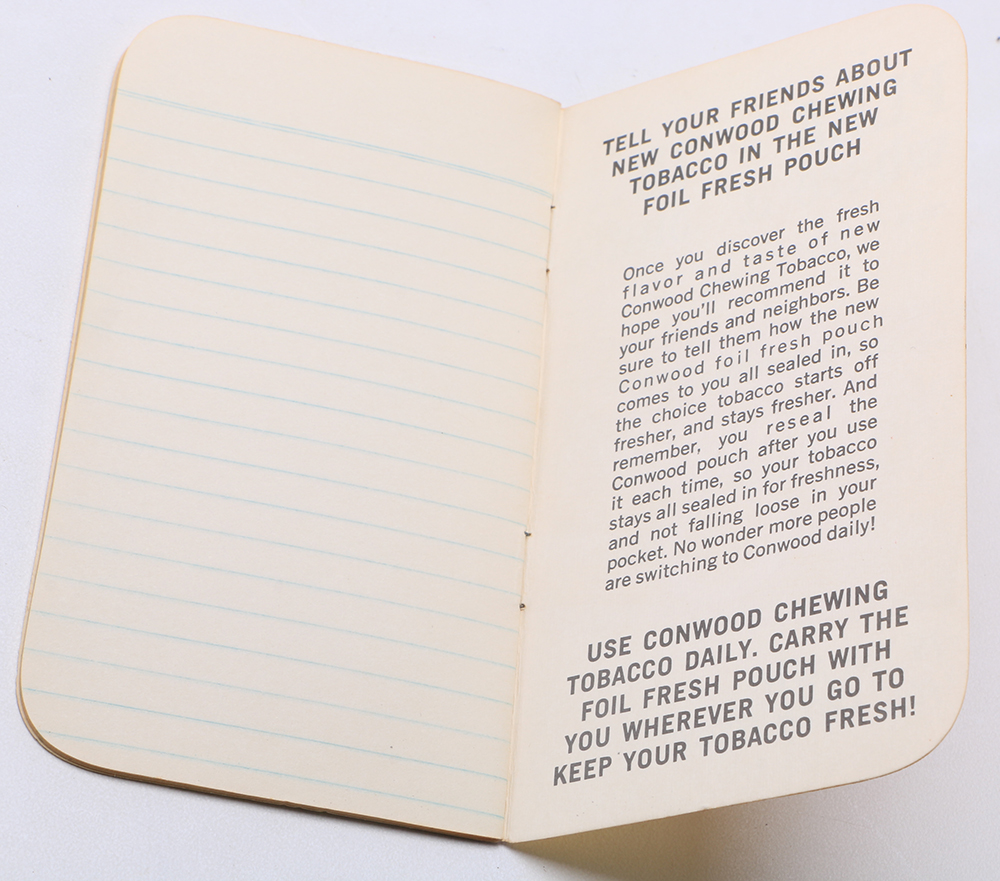 TELL YOUR FRIENDS ABOUT
NEW CONWOOD CHEWING
TOBACCO IN THE NEW
FOIL FRESH POUCH
Once you discover the fresh
flavor and taste of new
Conwood Chewing Tobacco, we
hope you'll recommend it to
your friends and neighbors. Be
sure to tell them how the new
Conwood foil fresh pouch
comes to you all sealed in, so
the choice tobacco starts off
fresher, and stays fresher. And
remember, you reseal the
Conwood pouch after you use
it each time, so your tobacco
stays all sealed in for freshness,
and not falling loose in your
pocket. No wonder more people
are switching to Conwood daily!
USE CONWOOD CHEWING
TOBACCO DAILY. CARRY THE
FOIL FRESH POUCH WITH
YOU WHEREVER YOU GO TO
KEEP YOUR TOBACCO FRESH!